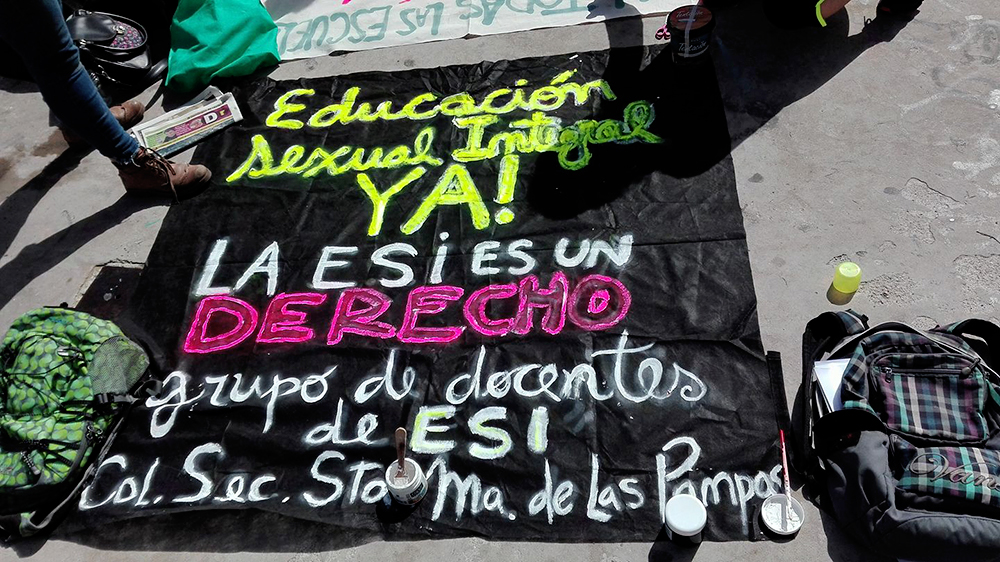 TODAS LAS ESCUEL
Educación
Sexual Integral
YA!
LA ESi ES UN
DERECHO
grupo de docentes
de ESI
Col. Sec. Sta Ma. de Las Pampas
Vans